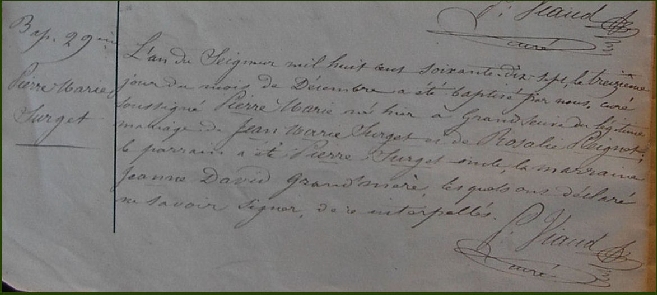 P. Viaud
curé
Bap. 29ème
Pierre Marie
Surget
L'an du Seigneur mil huit cent soixante-dix-sept, le treizième
jour du mois de Décembre a été baptisé par nous, curé
soussigné Pierre Marie né hier à Grand du légitime
mariage de Jean Marie Surget et de Rosalie
le parrain a été Pierre Surget oncle, la marraine
Jeanne David Grandmère, lesquels ont déclaré
ne savoir signer, de ce interpellés.
P. Viaud
curé